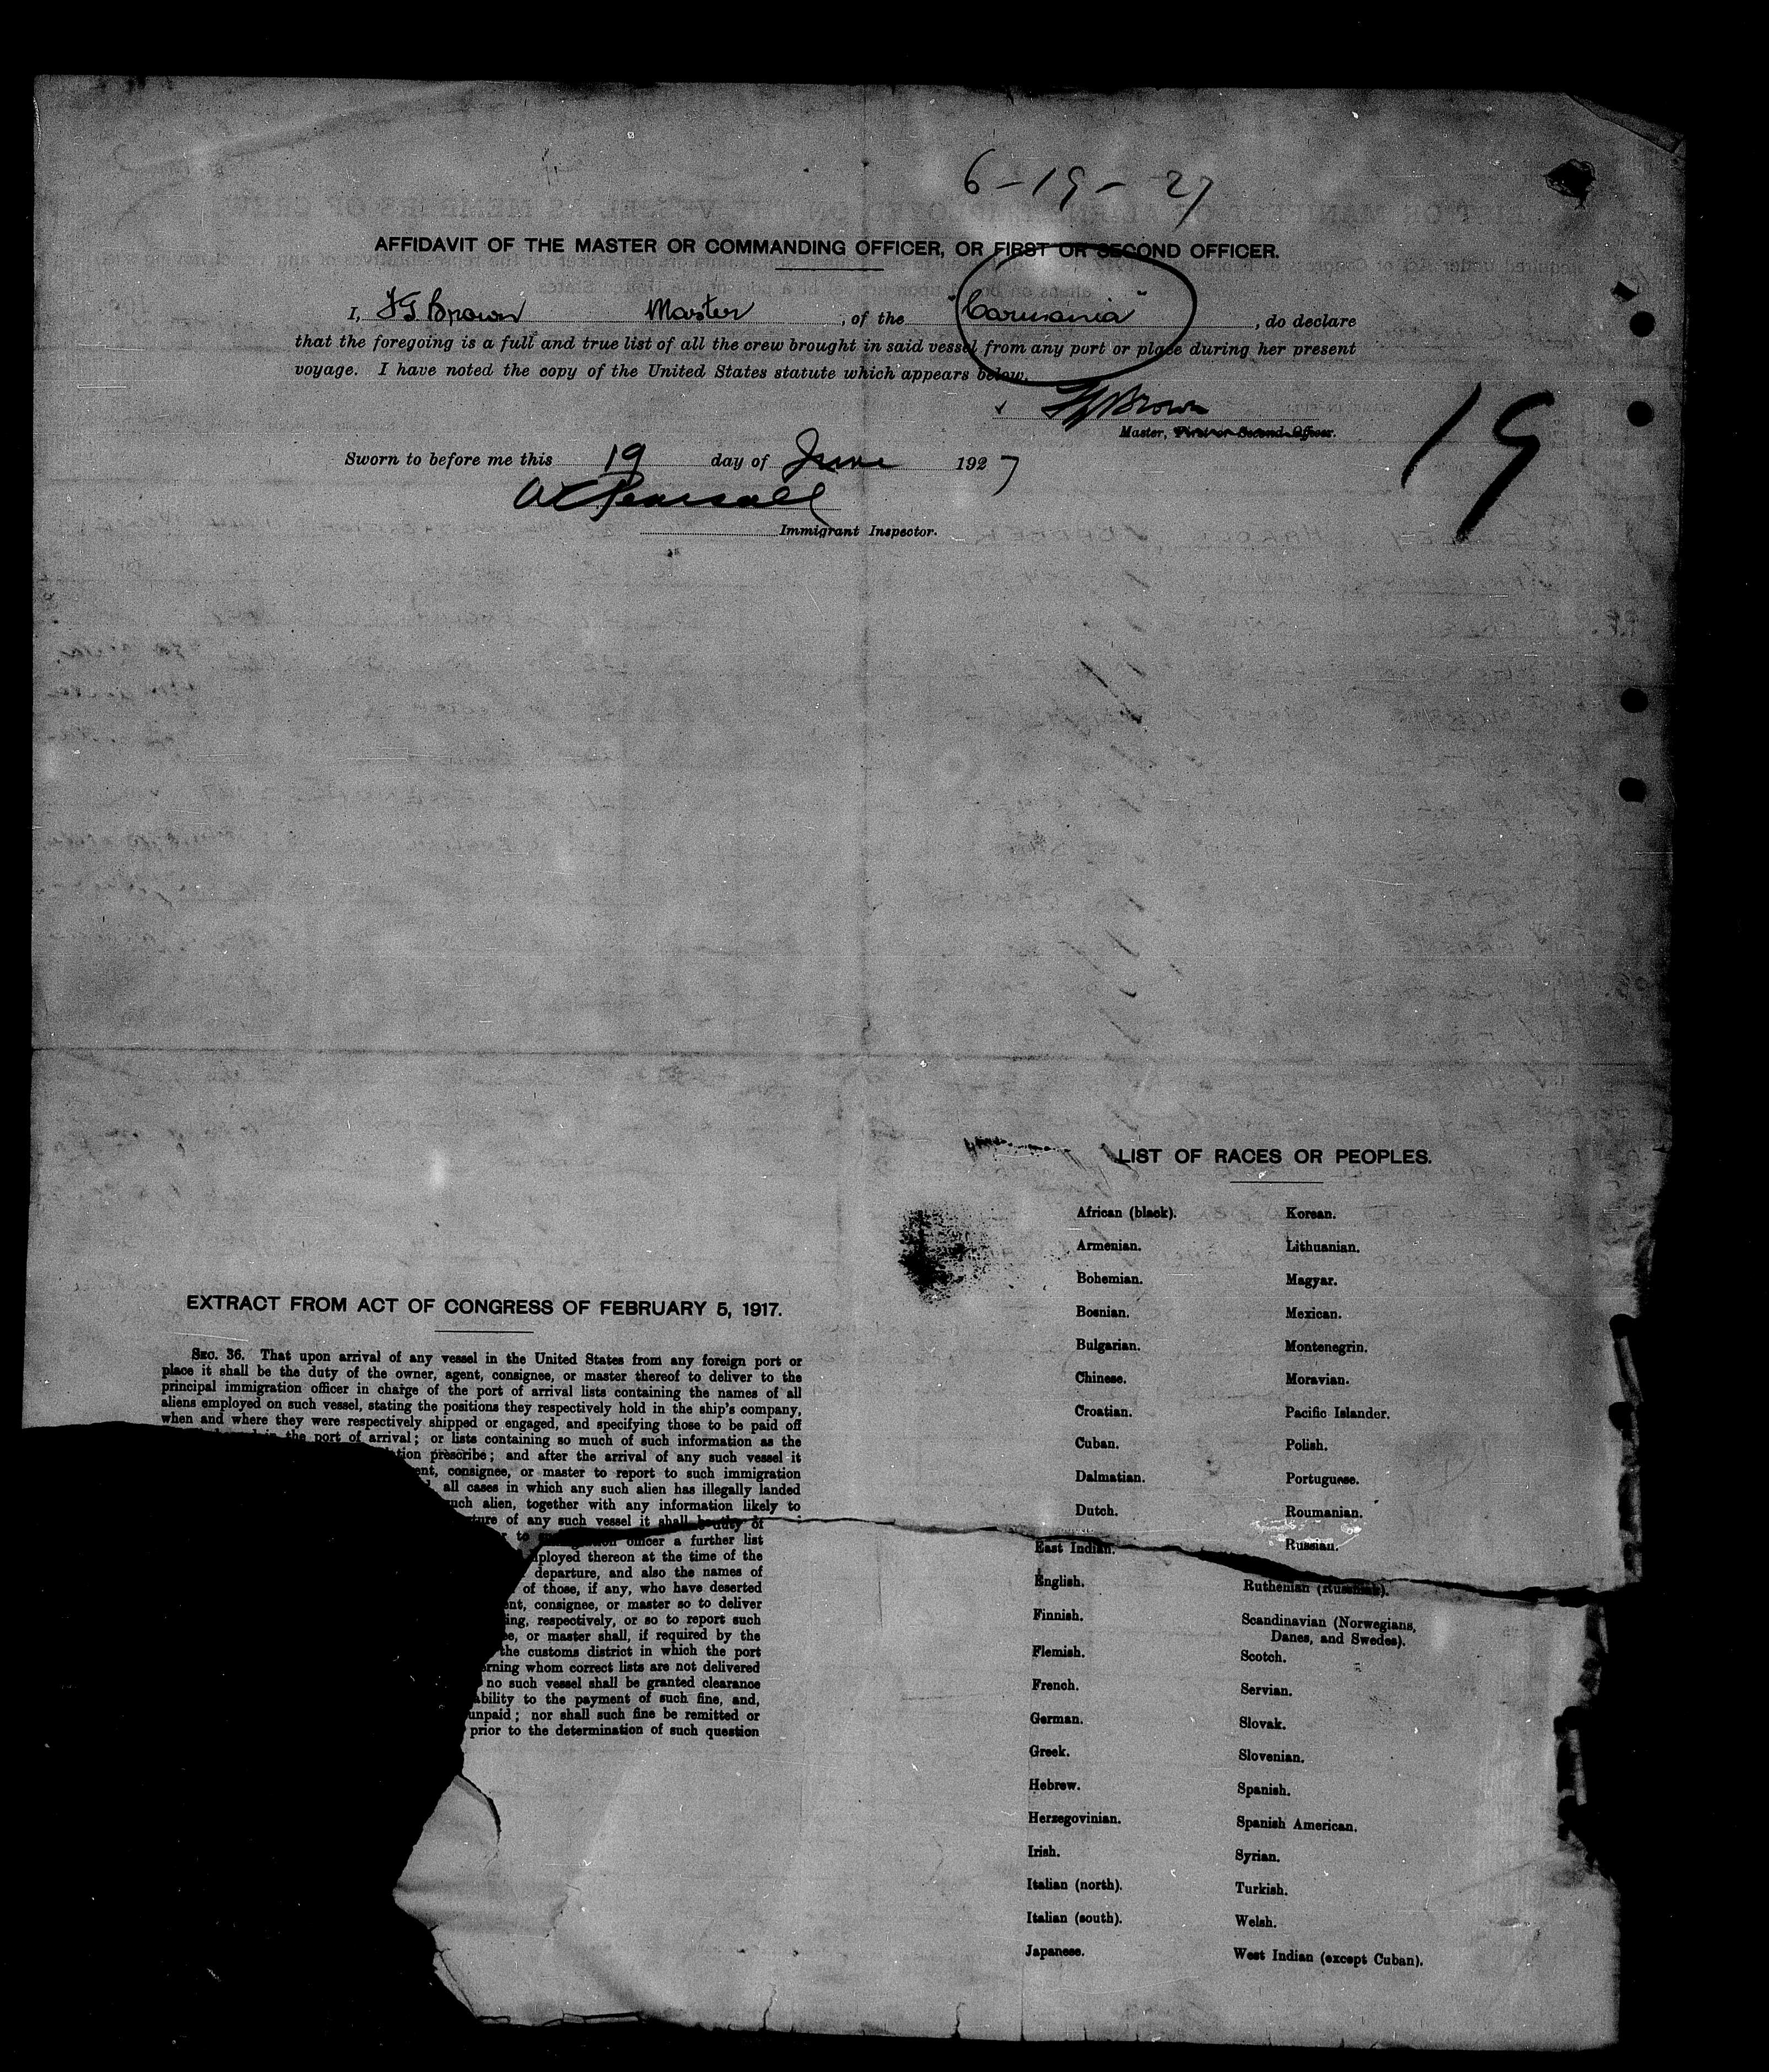 6-19-27
AFFIDAVIT OF THE MASTER OR COMMANDING OFFICER, OR FIRST OR SECOND OFFICER.
I, Brown Master, of the "Carmania", do declare
that the foregoing is a full and true list of all the crew brought in said vessel from any port or place during her present
voyage. I have noted the copy of the United States statute which appears below.
Brown
Master, First or Second Officer.
19
Sworn to before me this 19 day of June 1927
Immigrant Inspector.
LIST OF RACES OR PEOPLES.
African (black). Korean.
Armenian. Lithuanian.
Bohemian. Magyar.
Bosnian. Mexican.
Bulgarian. Montenegrin.
Chinese. Moravian.
Croatian. Pacific Islander.
Cuban. Polish.
Dalmatian. Portuguese.
Dutch. Roumanian.
East Indian. Russian.
English. Ruthenian (Russniak).
Finnish. Scandinavian (Norwegians,
Danes, and Swedes).
Flemish. Scotch.
French. Servian.
German. Slovak.
Greek. Slovenian.
Hebrew. Spanish.
Herzegovinian. Spanish American.
Irish. Syrian.
Italian (north). Turkish.
Italian (south). Welsh.
Japanese. West Indian (except Cuban).
EXTRACT FROM ACT OF CONGRESS OF FEBRUARY 5, 1917.
SEC. 36. That upon arrival of any vessel in the United States from any foreign port or
place it shall be the duty of the owner, agent, consignee, or master thereof to deliver to the
principal immigration officer in charge of the port of arrival lists containing the names of all
aliens employed on such vessel, stating the positions they respectively hold in the ship's company,
when and where they were respectively shipped or engaged, and specifying those to be paid off
the port of arrival; or lists containing so much of such information as the
prescribe; and after the arrival of any such vessel it
consignee, or master to report to such immigration
all cases in which any such alien has illegally landed
such alien, together with any information likely to
of any such vessel it shall be duty of
to officer a further list
employed thereon at the time of the
departure, and also the names of
of those, if any, who have deserted
consignee, or master so to deliver
respectively, or so to report such
or master shall, if required by the
the customs district in which the port
whom correct lists are not delivered
no such vessel shall be granted clearance
to the payment of such fine, and,
unpaid; nor shall such fine be remitted or
prior to the determination of such question